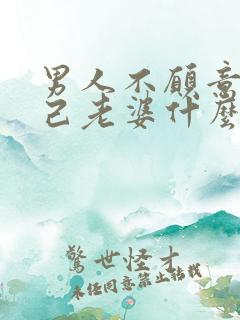 男人不愿意
己老婆什麽
驚世怪才
未经同意禁止转载